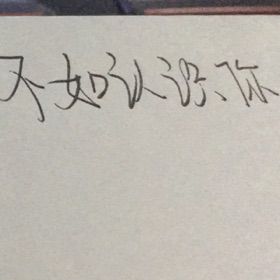 不如认识你